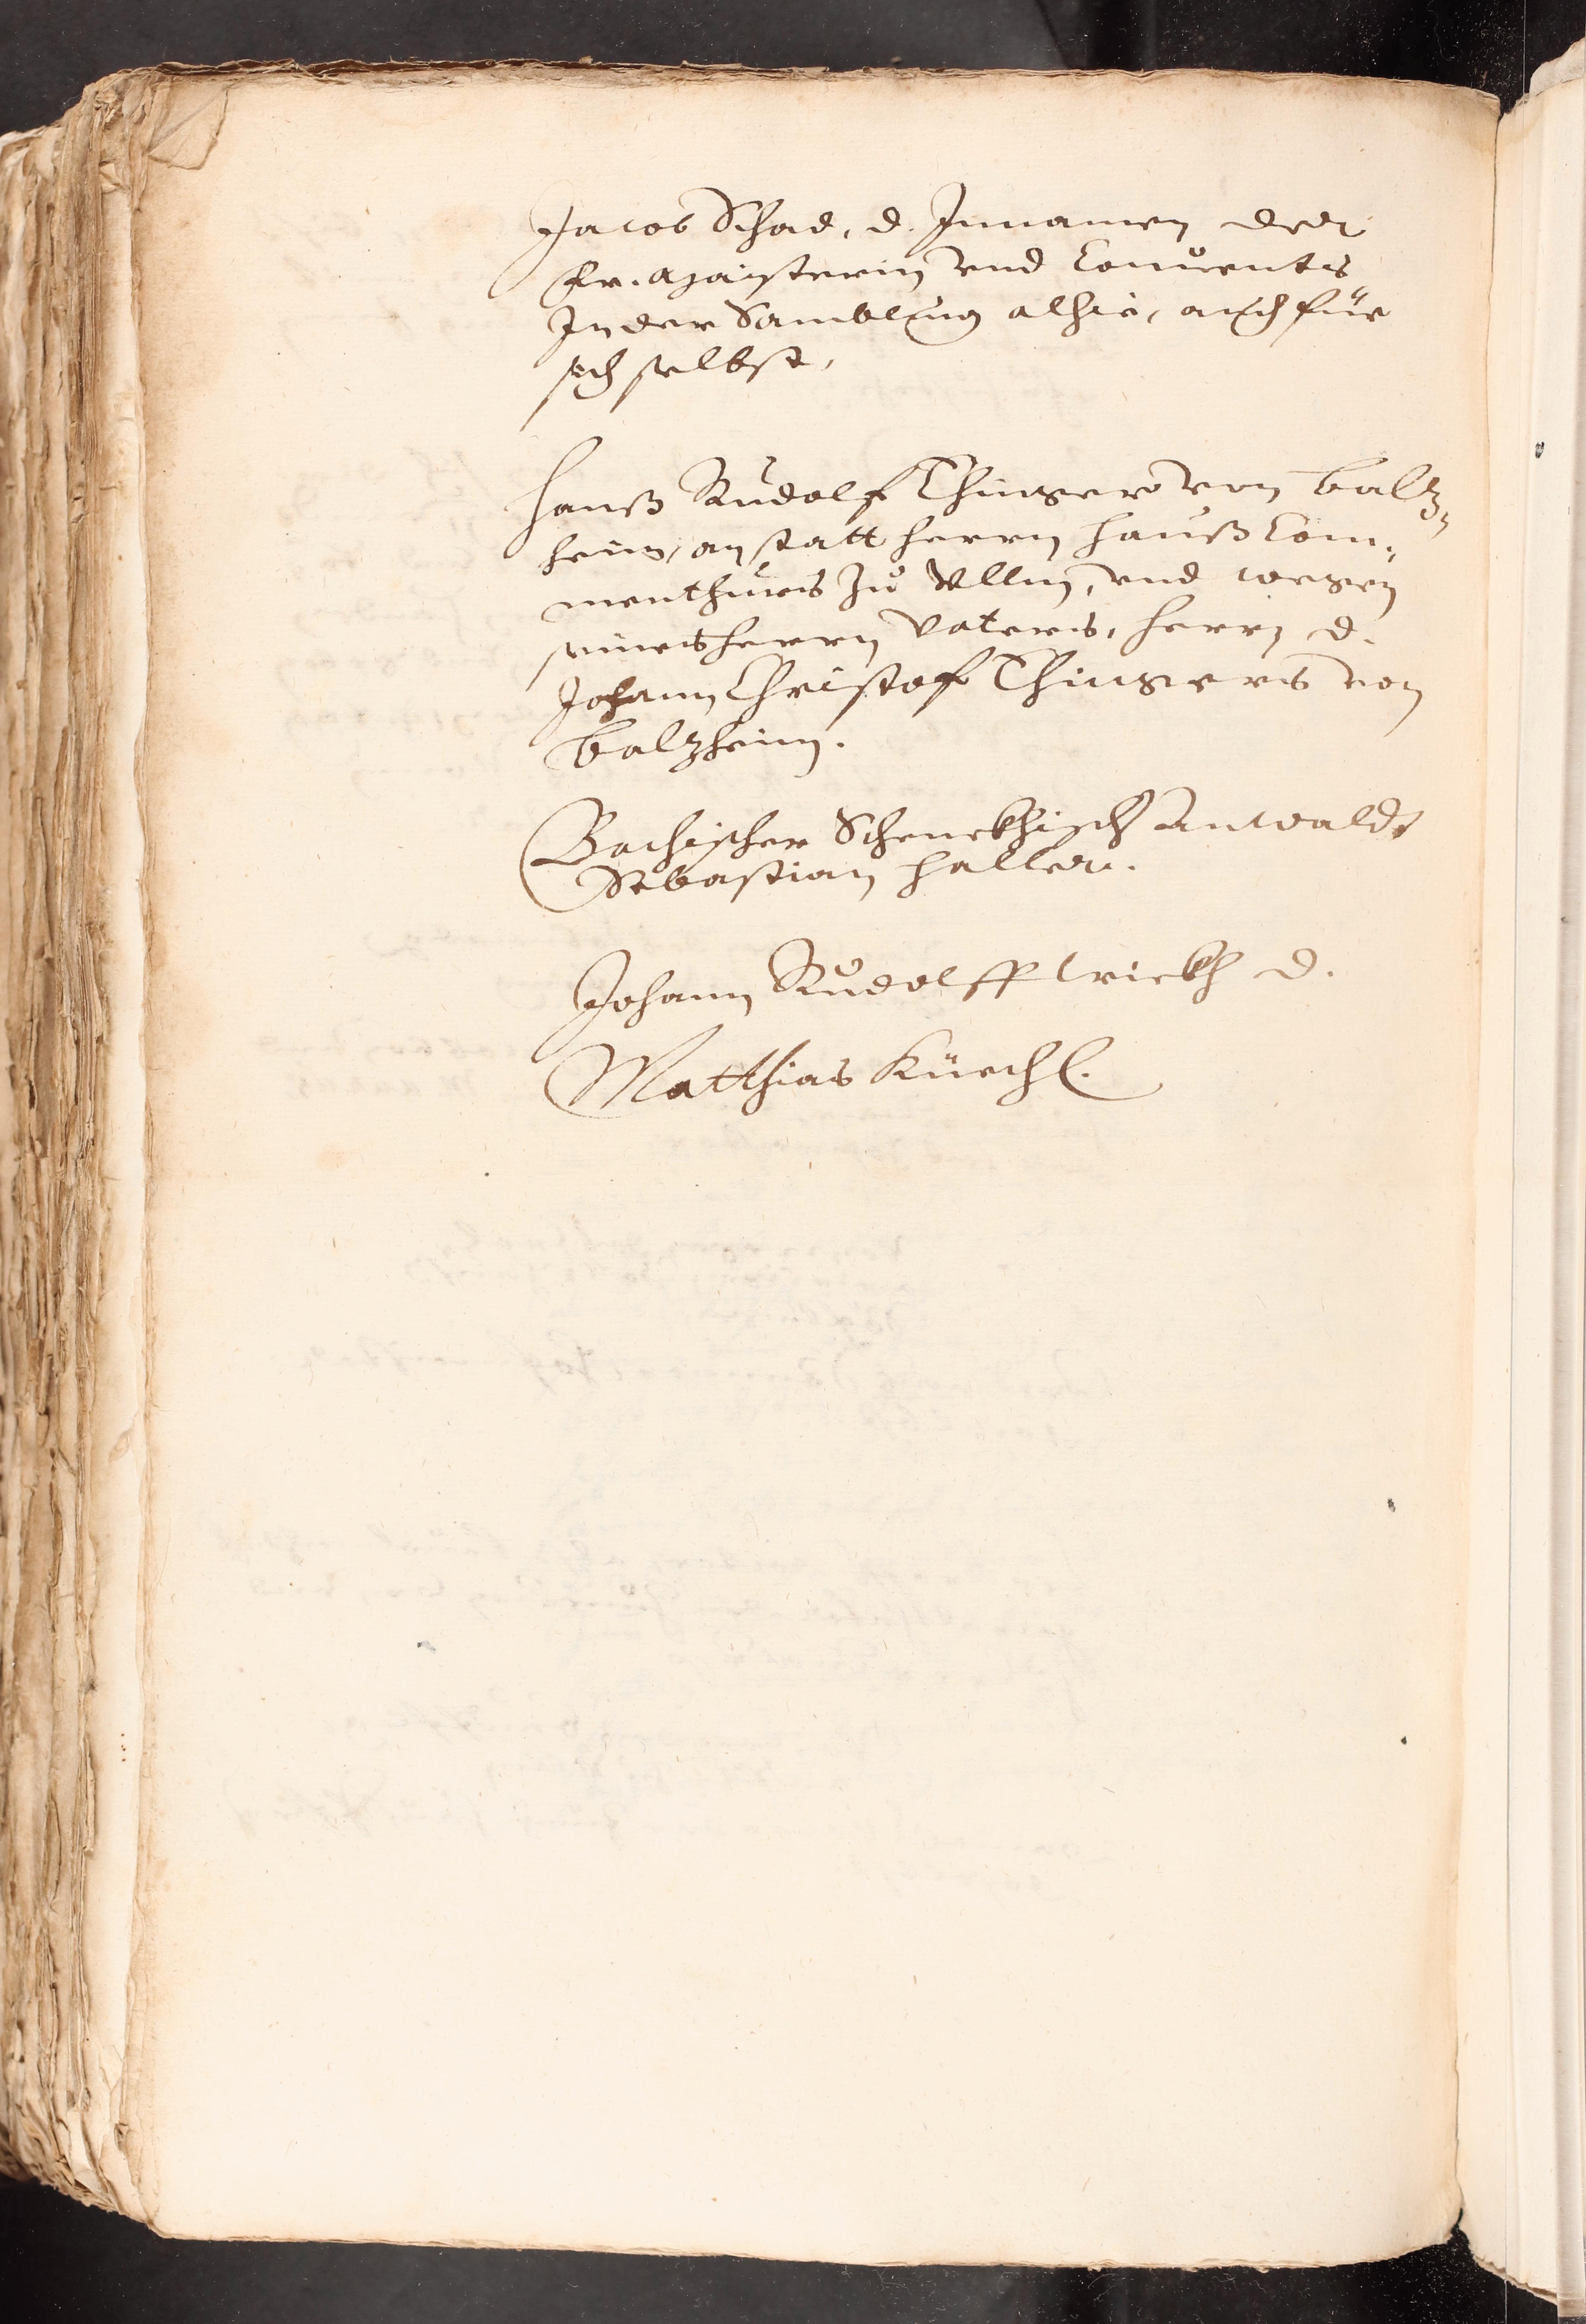 Jacob Schad, D. Innamen der
Fr. Maisterin vnd Conuents
In der Samblung alhie, auch für
sich selbst,
Hanß Rudolf Ehinger von Baltz¬
heim, an statt herrn Hauß Com¬
menthurs zu Vllm, vnd wegen
seines herrn Vaters, herrn D.
Johann Christof Ehingers von
Baltzheim.
Sebastian Haller.
Johann Rudolff Wickh D.
Matthias Küechl.